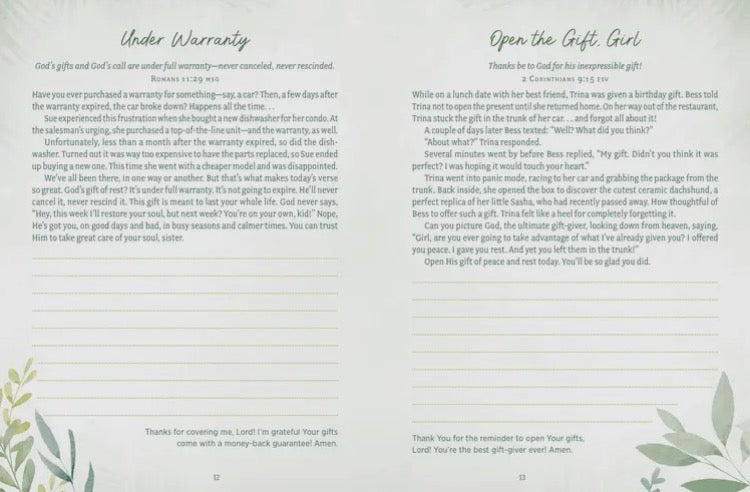 Under Warranty
God's gifts and God's call are under full warranty—never canceled, never rescinded.
Romans 11:29 MSG
Have you ever purchased a warranty for something—say, a car? Then, a few days after
the warranty expired, the car broke down? Happens all the time. . .
Sue experienced this frustration when she bought a new dishwasher for her condo. At
the salesman's urging, she purchased a top-of-the-line unit—and the warranty, as well.
Unfortunately, less than a month after the warranty expired, so did the dish-
washer. Turned out it was way too expensive to have the parts replaced, so Sue ended
up buying a new one. This time she went with a cheaper model and was disappointed.
We've all been there, in one way or another. But that's what makes today's verse
so great. God's gift of rest? It's under full warranty. It's not going to expire. He'll never
cancel it, never rescind it. This gift is meant to last your whole life. God never says,
"Hey, this week I'll restore your soul, but next week? You're on your own, kid!" Nope,
He's got you, on good days and bad, in busy seasons and calmer times. You can trust
Him to take great care of your soul, sister.
Thanks for covering me, Lord! I'm grateful Your gifts
come with a money-back guarantee! Amen.
12
Open the Gift, Girl
Thanks be to God for his inexpressible gift!
2 Corinthians 9:15 ESV
While on a lunch date with her best friend, Trina was given a birthday gift. Bess told
Trina not to open the present until she returned home. On her way out of the restaurant,
Trina stuck the gift in the trunk of her car. . .and forgot all about it!
A couple of days later Bess texted: "Well? What did you think?"
"About what?" Trina responded.
Several minutes went by before Bess replied, "My gift. Didn't you think it was
perfect? I was hoping it would touch your heart."
Trina went into panic mode, racing to her car and grabbing the package from the
trunk. Back inside, she opened the box to discover the cutest ceramic dachshund, a
perfect replica of her little Sasha, who had recently passed away. How thoughtful of
Bess to offer such a gift. Trina felt like a heel for completely forgetting it.
Can you picture God, the ultimate gift-giver, looking down from heaven, saying,
"Girl, are you ever going to take advantage of what I've already given you? I offered
you peace. I gave you rest. And yet you left them in the trunk!"
Open His gift of peace and rest today. You'll be so glad you did.
Thank You for the reminder to open Your gifts,
Lord! You're the best gift-giver ever! Amen.
13